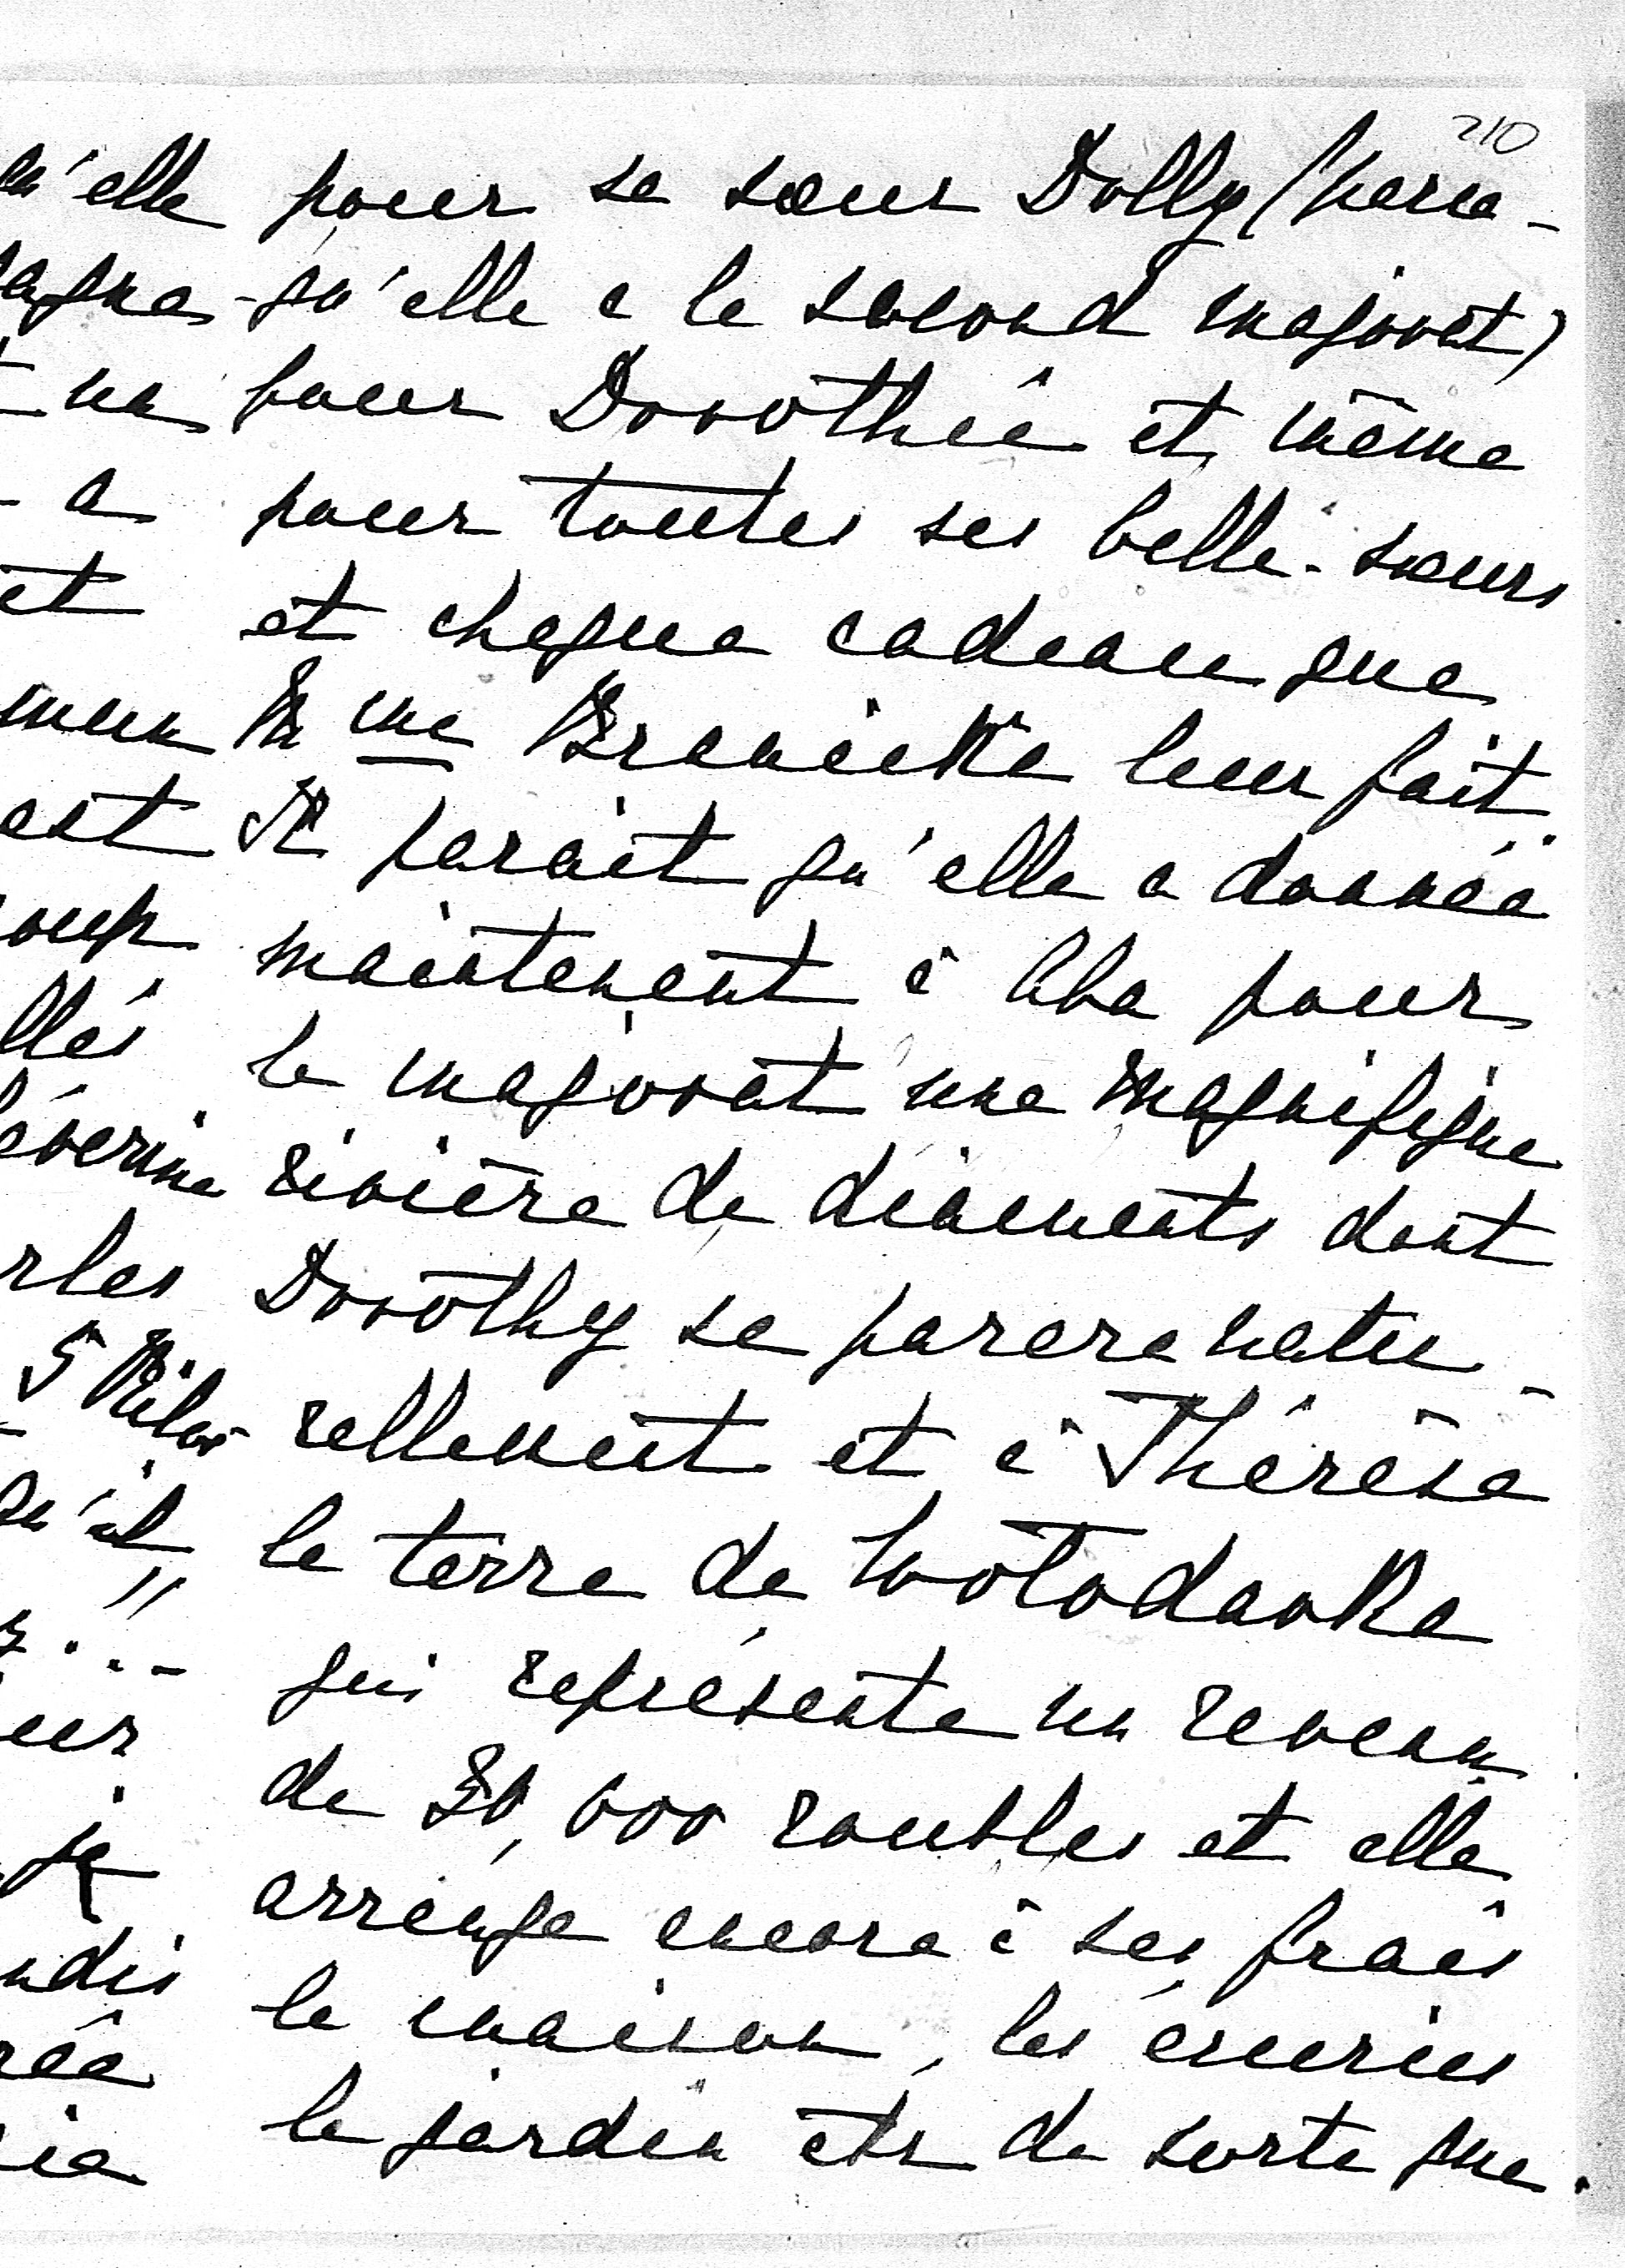 210
pour sa sœur Dolly (parce-
qu'elle a le second majorat)
pour Dorothée et même
pour toutes ses belle-sœurs
et chaque cadeau que
Mme Branicka leur fait.
Il parait qu'elle a donnée
maintenant à Aba pour
le majorat une magnifique
rivière de diamants dont
Dorothy se parera natu-
rellement et à Thérèse
la terre de Wolodarka
qui représente un revenu
de 30,000 roubles et elle
arrange encore à ses frais
la maison, les écuries
le jardin etc de sorte que